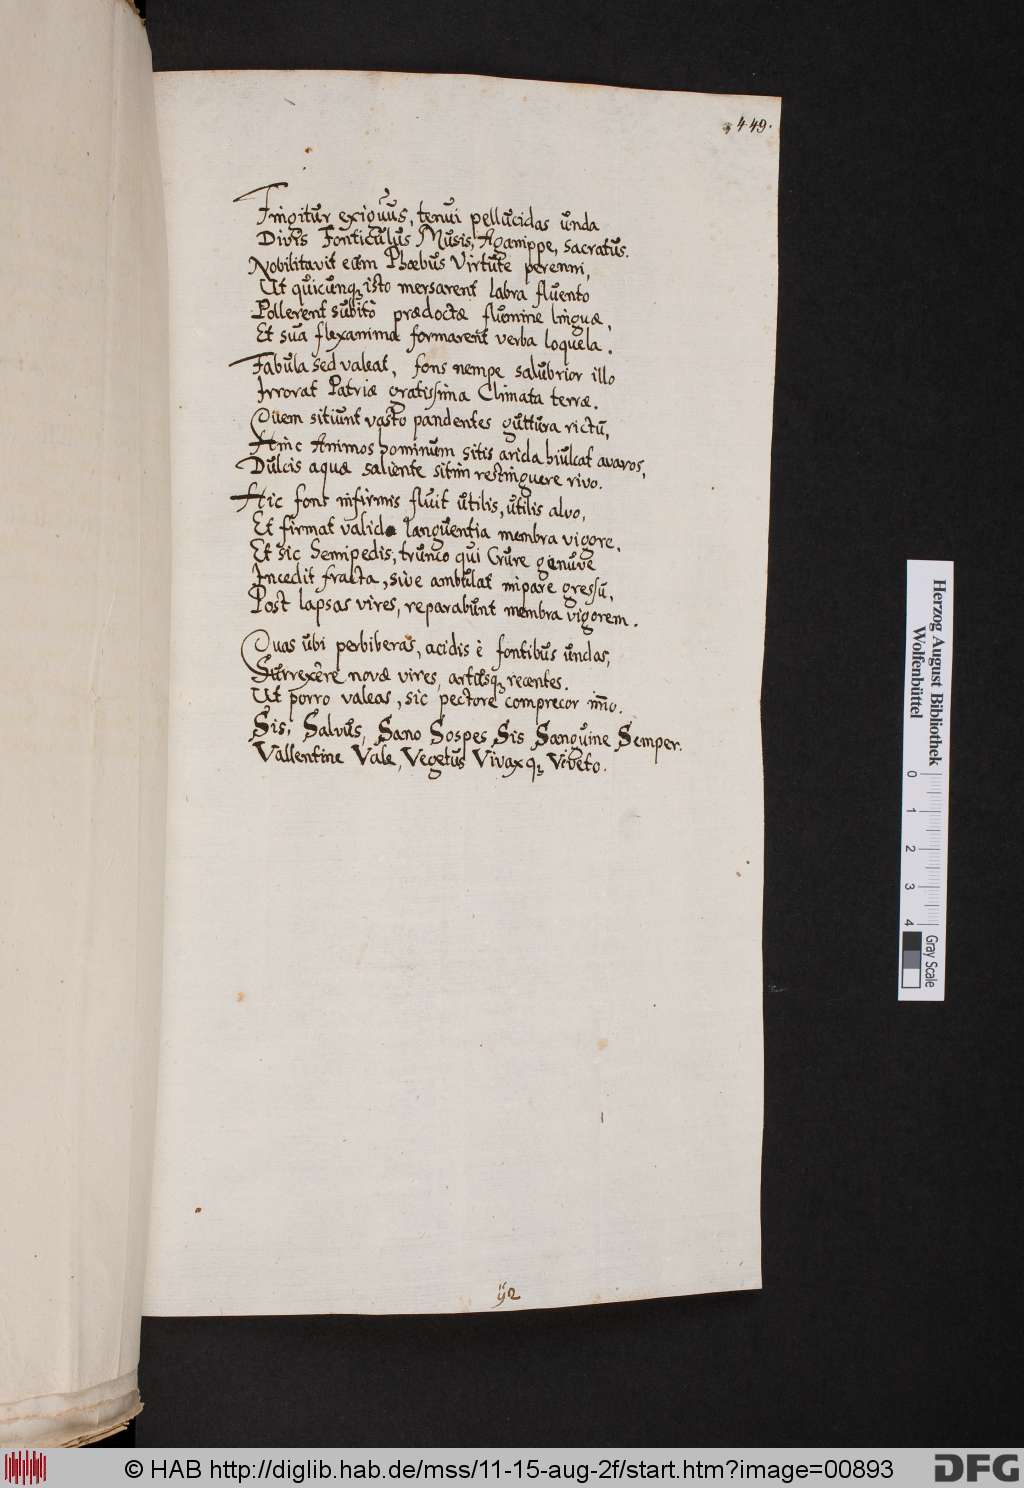 449.
Fingitur exiguus, tenui pellucidas unda
Divis Fonticulus Musis, Aganippe, sacratus.
Nobilitavit eum Phœbus virtute perenni,
Ut quicunq; isto mersarent labra fluento
Pollerent subitò prædoctæ flumine linguæ,
Et sua flexanimæ formarent verba loquela.
Fabula sed valeat, fons nempe salubrior illo
Irrorat Patriæ gratissima Climata terræ.
Quem sitiunt vasto pandentes guttura rictu,
Hinc Animos hominum sitis arida hiulcat avaros,
Dulcis aquæ saliente sitim restinguere rivo.
Hic fons infirmis fluit utilis, utilis alvo,
Et firmat valido languentia membra vigore.
Et sic Semipedis, trunco qui Crure genuve
Incedit fracta, sive ambulat impare gressu,
Post lapsas vires, reparabunt membra vigorem.
Quas ubi perbiberas, acidis è fontibus undas,
Surrexêre novæ vires, artusq; recentes.
Ut porro valeas, sic pectore comprecor imo.
Sis, Salvus, Sano Sospes Sis Sanguine Semper.
Vallentine Vale, Vegetus Vivaxq; Viveto.
ij2
Herzog August Bibliothek
Wolfenbüttel
0 1 2 3 4
Gray Scale
© HAB http://diglib.hab.de/mss/11-15-aug-2f/start.htm?image=00893
DFG